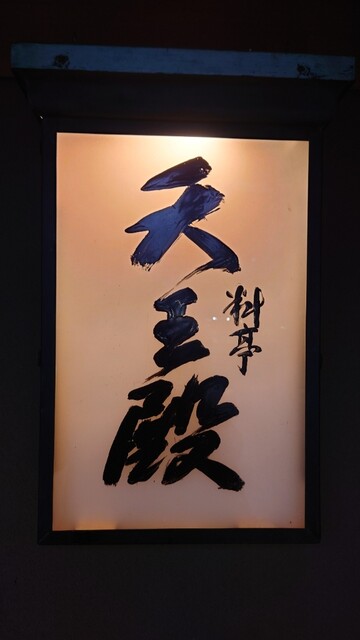 料亭
天王殿